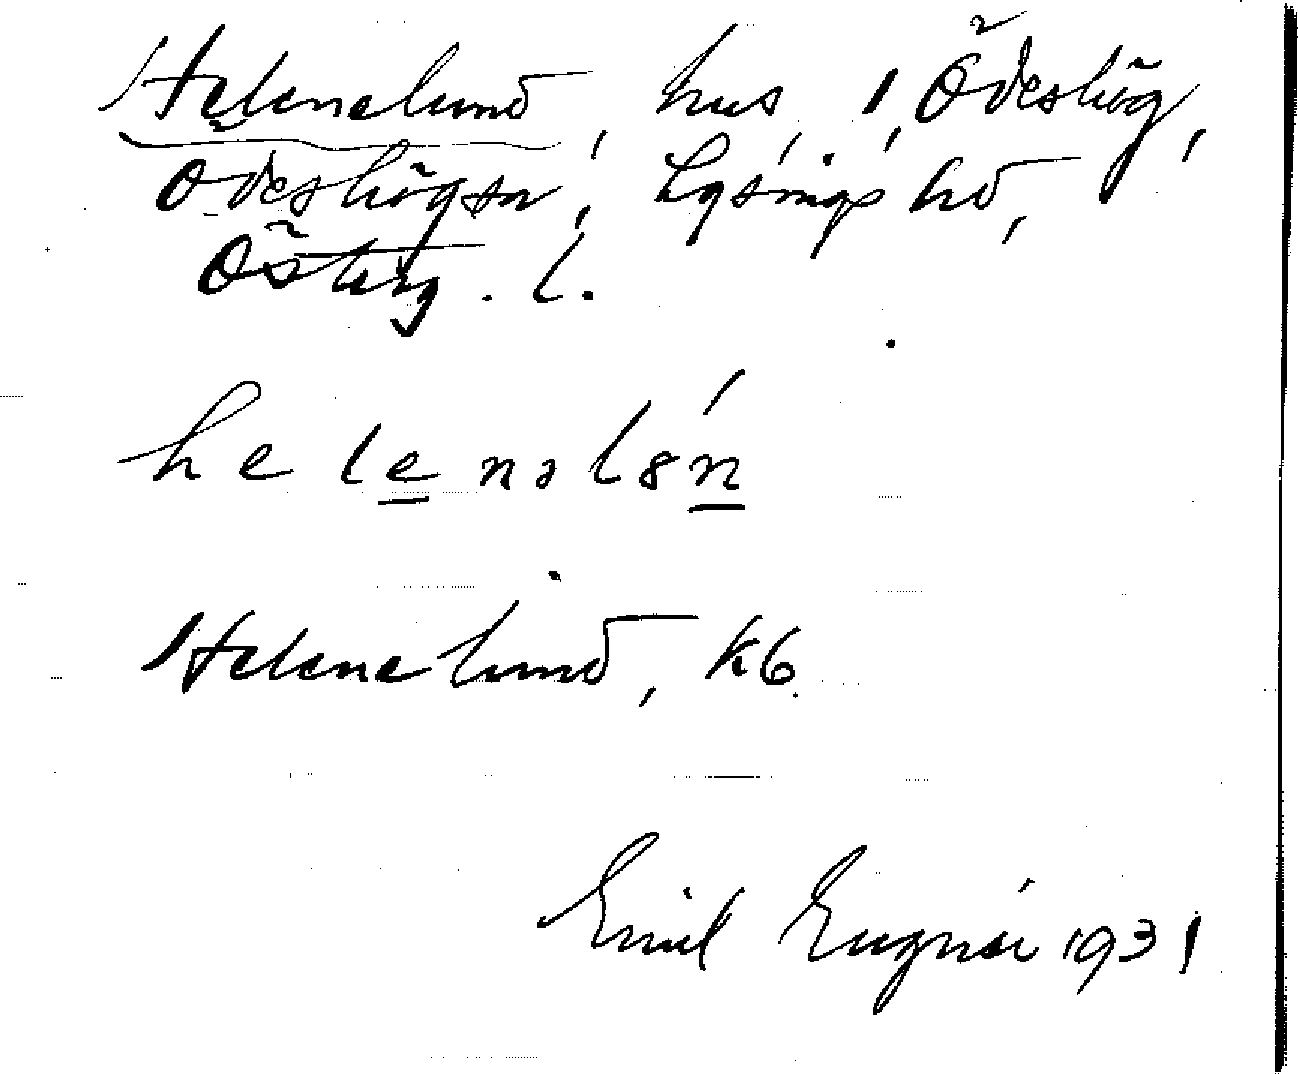 Helenelund, hus, 1, Ödeshög,
Ödeshögs sn, Lysings hd,
Österg. l.
helenəlɞń
Helenelund, kb
Emil 1931